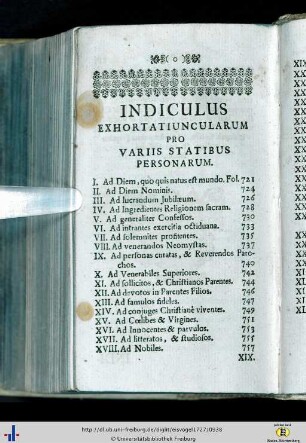 0
INDICULUS
EXHORTATIUNCULARUM
PRO
VARIIS STATIBUS
PERSONARUM.
I. Ad Diem, quo quis natus est mundo. Fol. 721
II. Ad Diem Nominis. 724
III. Ad lucrandum Jubilæum. 726
IV. Ad Ingredientes Religionem sacram. 728
V. Ad generaliter Confessos. 730
VI. Ad intrantes exercitia octiduana. 733
VII. Ad solemniter profitentes. 735
VIII. Ad venerandos Neomystas. 737
IX. Ad personas curatas, & Reverendos Paro-
chos. 740
X. Ad Venerabiles Superiores. 742
XI. Ad sollicitos, & Christianos Parentes. 744
XII. Ad devotos in Parentes Filios. 746
XIII. Ad famulos fideles. 747
XIV. Ad conjuges Christianè viventes. 749
XV. Ad Cœlibes & Virgines. 751
XVI. Ad Innocentes & parvulos. 753
XVII. Ad litteratos, & studiosos. 755
XVIII. Ad Nobiles. 757
XIX.
http://dl.ub.uni-freiburg.de/diglit/eisvogel1727/0938
© Universitätsbibliothek Freiburg